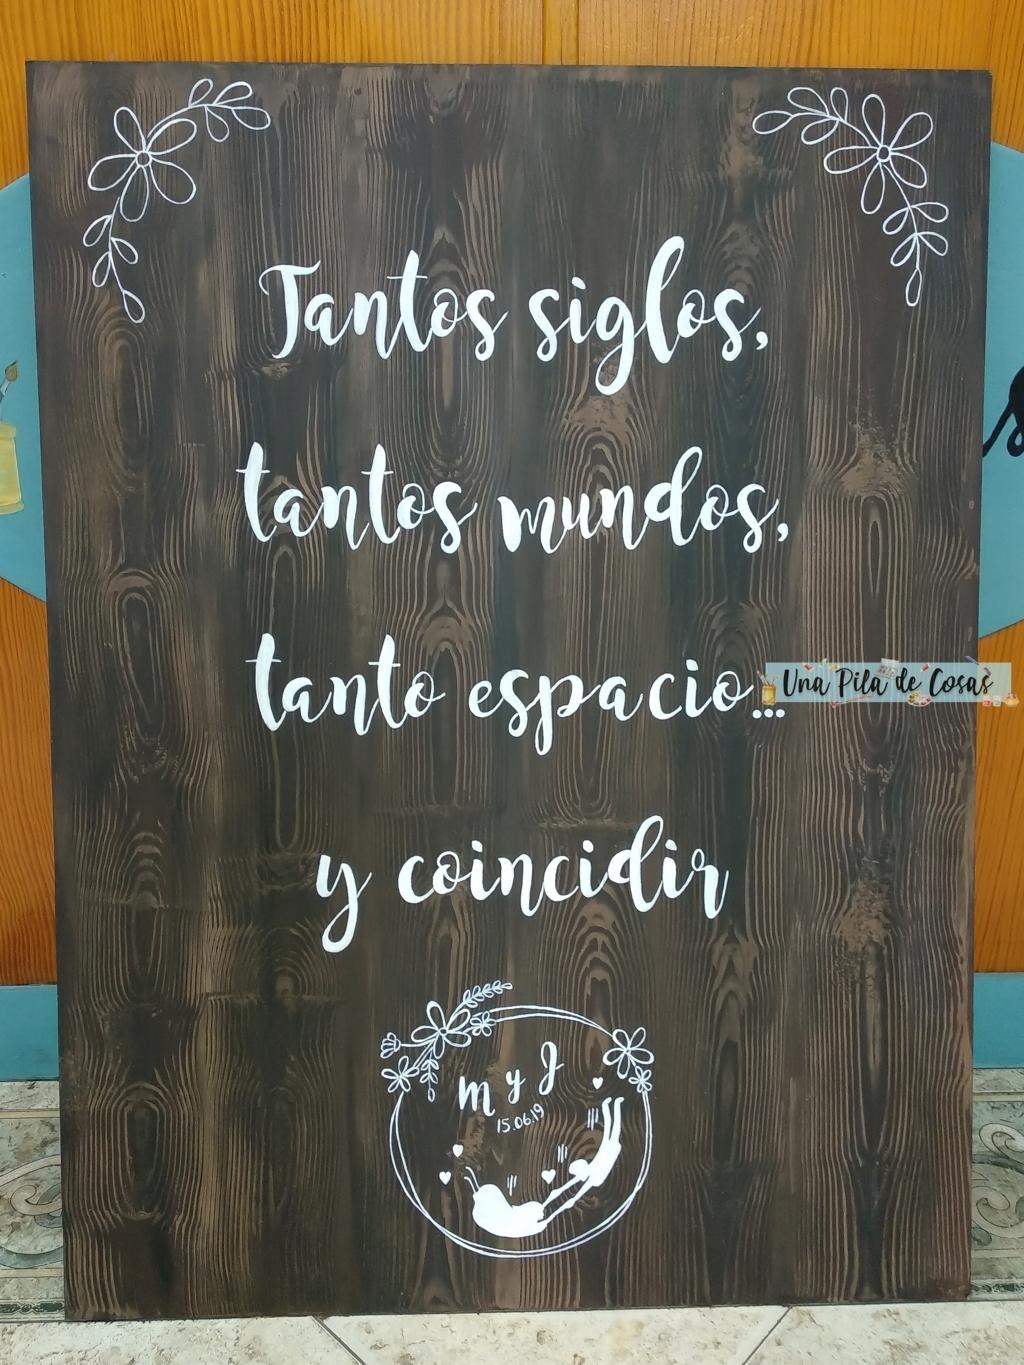 Tantos siglos,
tantos mundos,
tanto espacio...
Una Pila de Cosas
y coincidir
m y J
15.06.19